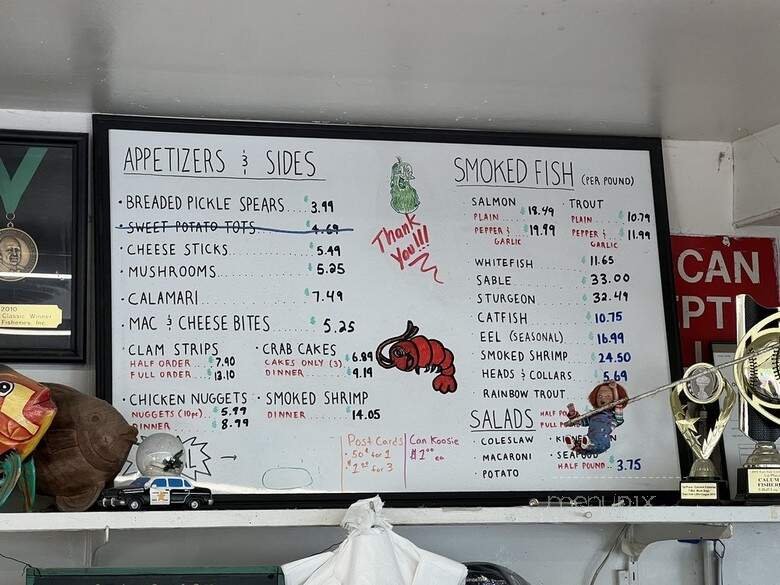 APPETIZERS & SIDES
• BREADED PICKLE SPEARS.... $3.99
• SWEET POTATO TOTS........ $4.69
• CHEESE STICKS............ $5.49
• MUSHROOMS................ $5.25
• CALAMARI................. $7.49
• MAC & CHEESE BITES $5.25
• CLAM STRIPS
HALF ORDER... $7.90
FULL ORDER... $13.10
• CRAB CAKES
CAKES ONLY (3) $6.89
DINNER.... $9.19
• CHICKEN NUGGETS
NUGGETS (10pc) $5.99
DINNER $8.99
• SMOKED SHRIMP
DINNER $14.05
Thank
You!!!
Post Cards
• 50¢ for 1
Can Koosie
SMOKED FISH (PER POUND)
SALMON
PLAIN $18.49
PEPPER & GARLIC $19.99
TROUT
PLAIN $10.79
PEPPER & GARLIC $11.99
WHITEFISH $11.65
SABLE 33.00
STURGEON $32.49
CATFISH $10.75
EEL (SEASONAL) $16.99
SMOKED SHRIMP $24.50
HEADS & COLLARS $5.69
RAINBOW TROUT
SALADS
• COLESLAW
• MACARONI
• POTATO
• SEAFOOD
HALF POUND.. $3.75
CAN
2010
Classic Winner
Fisheries Inc.
menupix